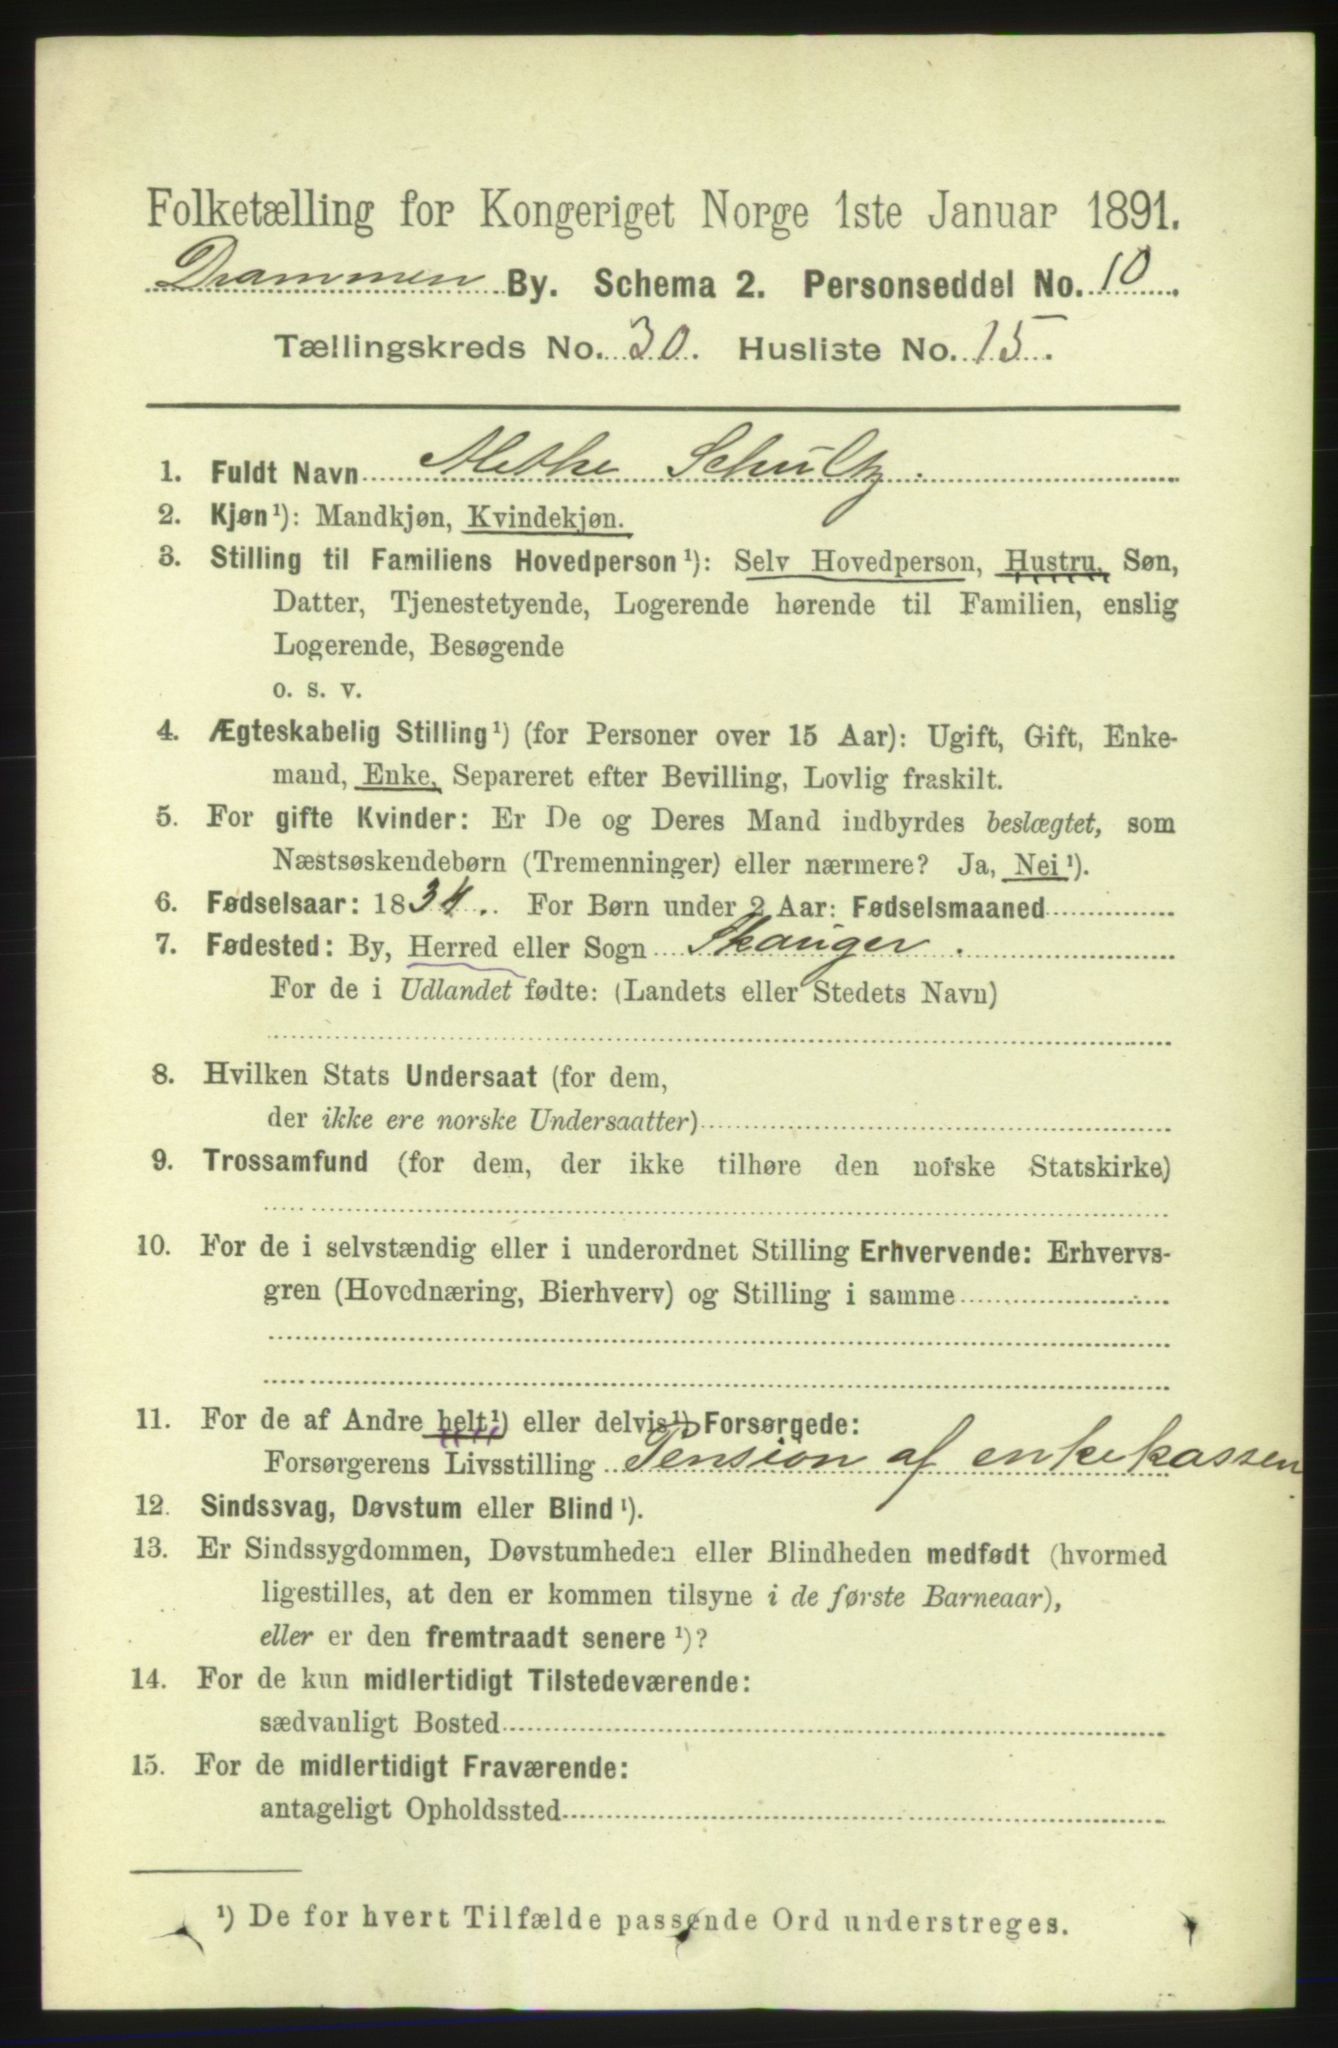 Folketælling for Kongeriget Norge 1ste Januar 1891.
Drammen By. Schema 2. Personseddel No. 10
Tællingskreds No. 30. Husliste No. 15.
1. Fuldt Navn Methe Schultz.
2. Kjøn¹): Mandkjøn, Kvindekjøn.
3. Stilling til Familiens Hovedperson¹): Selv Hovedperson, Hustru, Søn,
Datter, Tjenestetyende, Logerende hørende til Familien, enslig
Logerende, Besøgende
o. s. v.
4. Ægteskabelig Stilling¹) (for Personer over 15 Aar): Ugift, Gift, Enke-
mand, Enke, Separeret efter Bevilling, Lovlig fraskilt.
5. For gifte Kvinder: Er De og Deres Mand indbyrdes beslægtet, som
Næstsøskendebørn (Tremenninger) eller nærmere? Ja, Nei¹).
6. Fødselsaar: 1834. For Børn under 2 Aar: Fødselsmaaned
7. Fødested: By, Herred eller Sogn Skauger.
For de i Udlandet fødte: (Landets eller Stedets Navn)
8. Hvilken Stats Undersaat (for dem,
der ikke ere norske Undersaatter)
9. Trossamfund (for dem, der ikke tilhøre den norske Statskirke)
10. For de i selvstændig eller i underordnet Stilling Erhvervende: Erhvervs-
gren (Hovednæring, Bierhverv) og Stilling i samme
11. For de af Andre helt¹) eller delvis¹) Forsørgede:
Forsørgerens Livsstilling Pension af enkekassen
12. Sindssvag, Døvstum eller Blind¹).
13. Er Sindssygdommen, Døvstumheden eller Blindheden medfødt (hvormed
ligestilles, at den er kommen tilsyne i de første Barneaar),
eller er den fremtraadt senere¹)?
14. For de kun midlertidigt Tilstedeværende:
sædvanligt Bosted
15. For de midlertidigt Fraværende:
antageligt Opholdssted
¹) De for hvert Tilfælde passende Ord understreges.